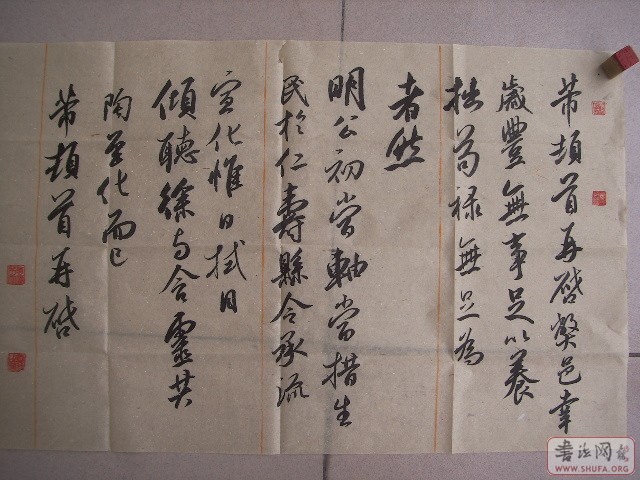 芾頓首再啓弊邑幸
歲豐無事足以養
拙苟禄無足為
者然
明公初當軸當措生
民於仁壽縣令承流
宣化惟日拭目
傾聽徐与含靈共
陶至化而已
芾頓首再啓
書法网
WWW.SHUFA.ORG